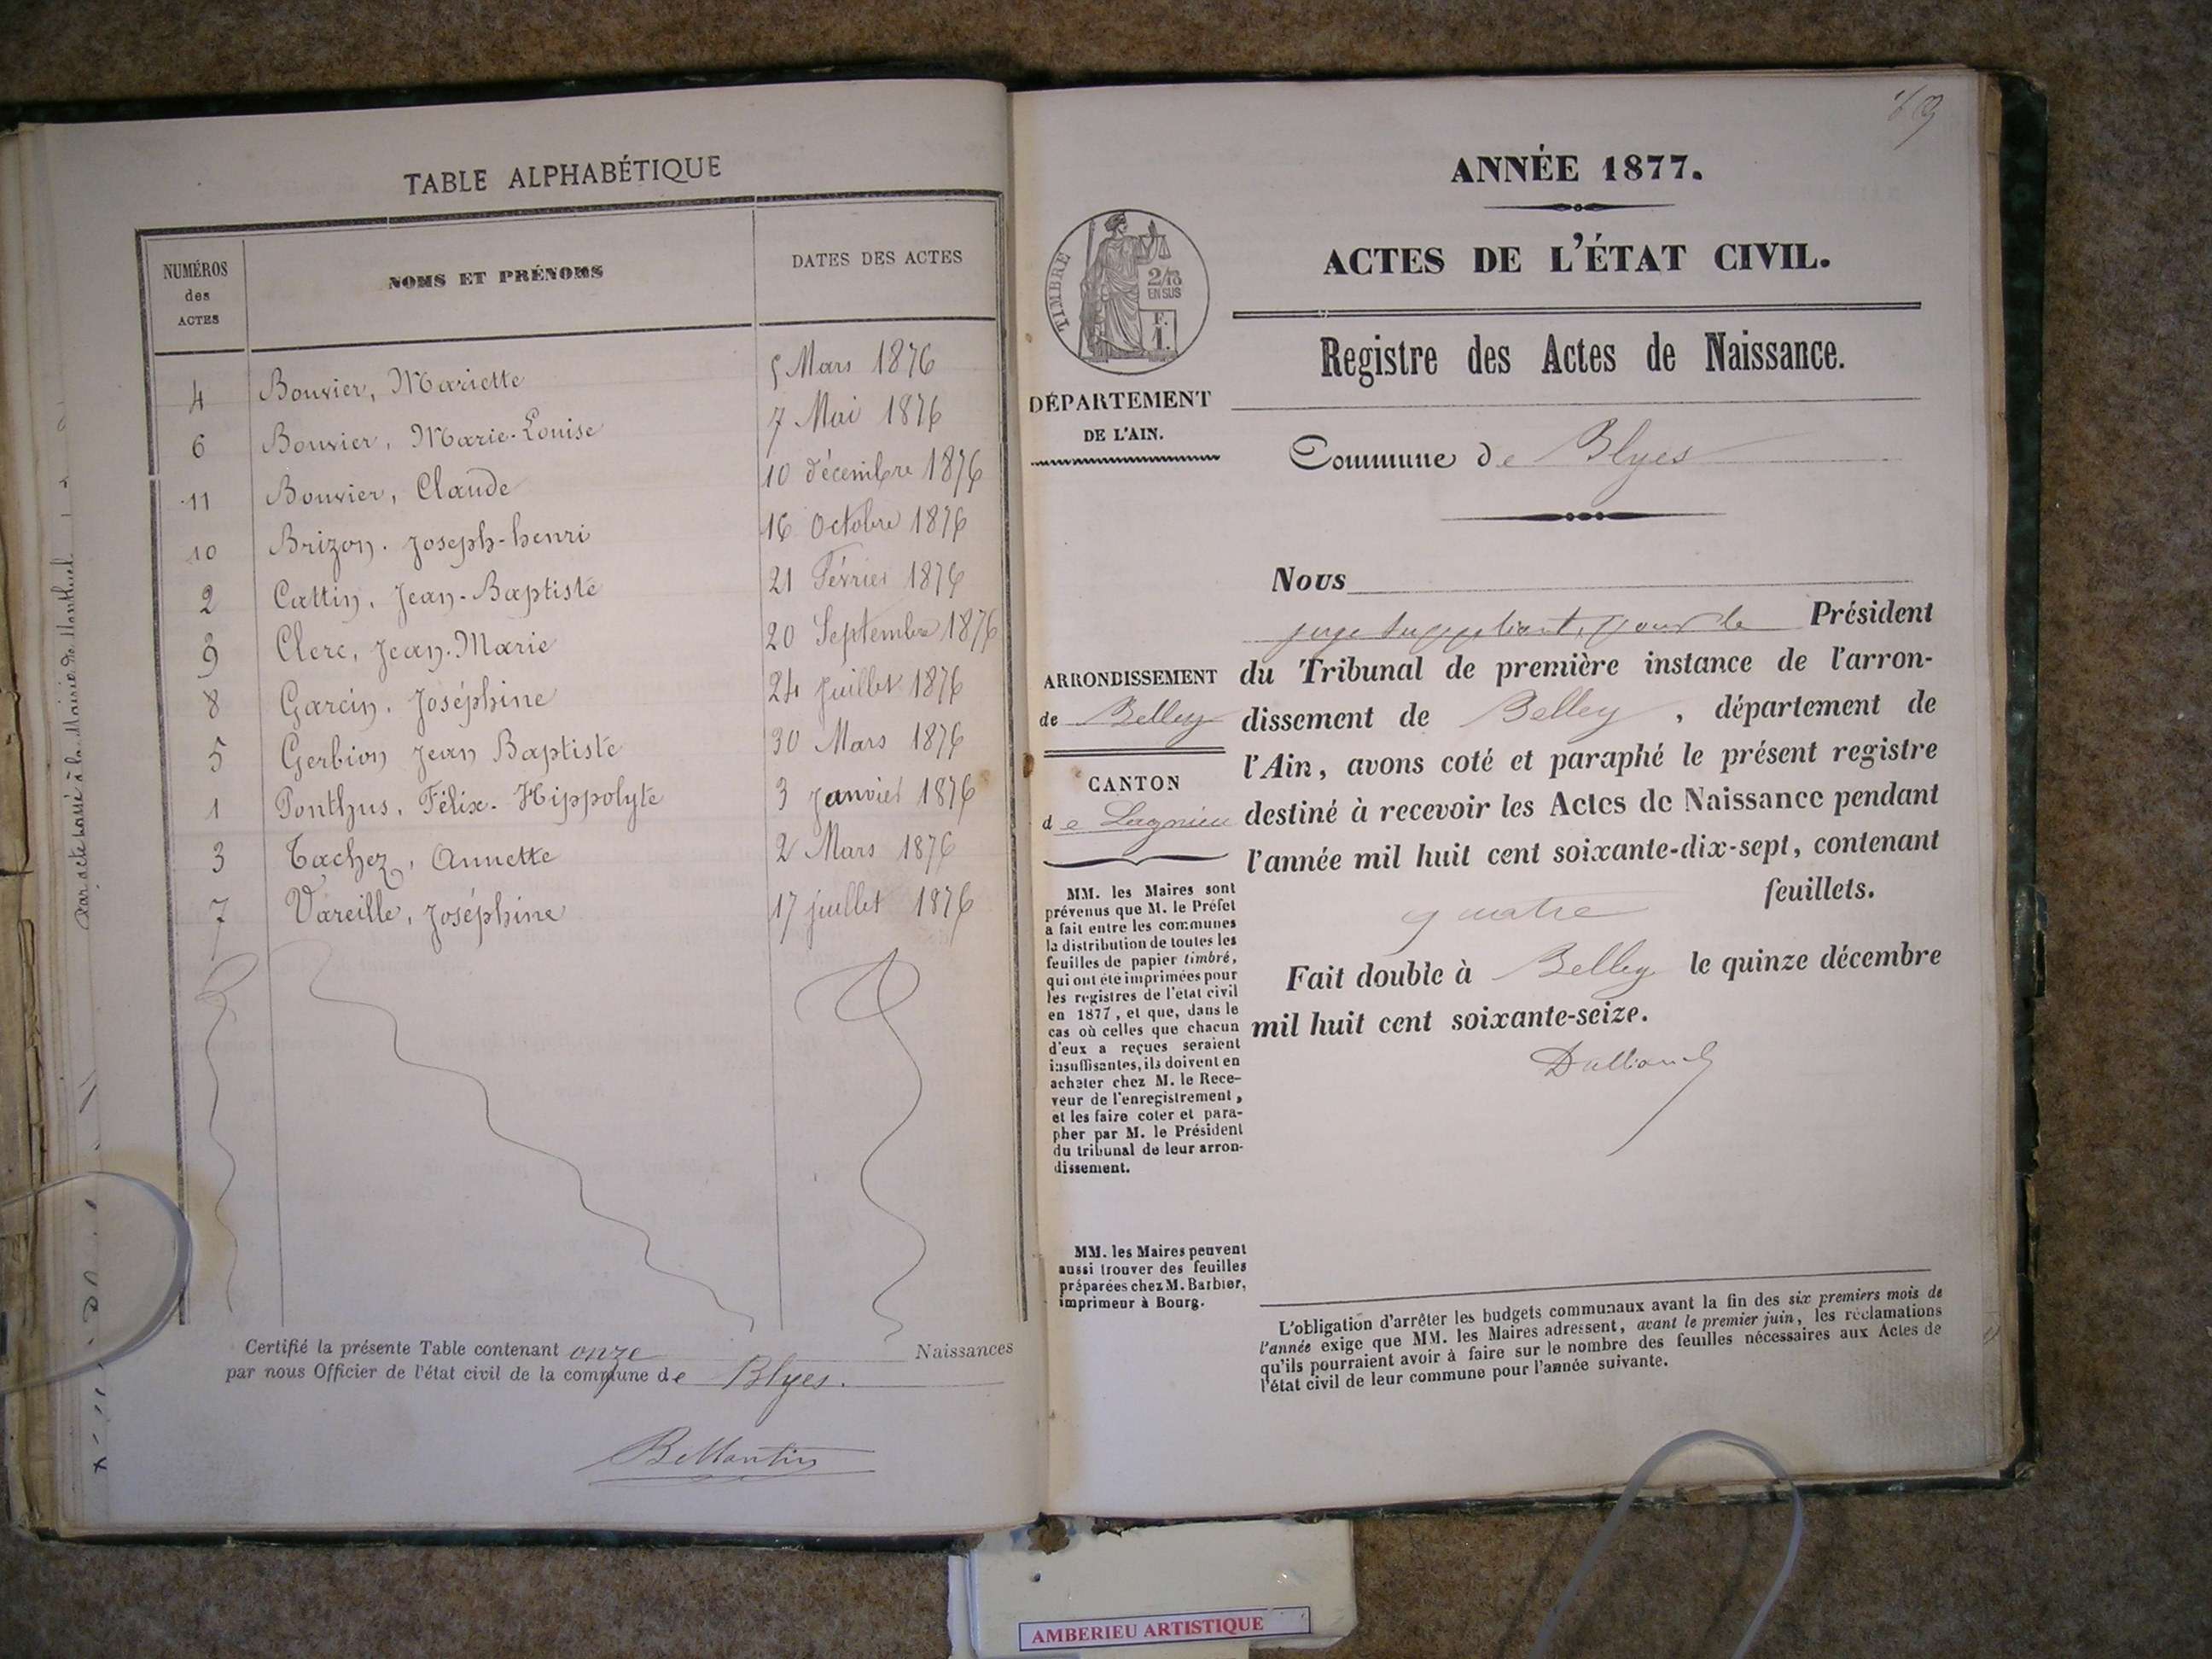 TABLE ALPHABÉTIQUE
NUMÉROS des ACTES
NOMS ET PRÉNOMS
DATES DES ACTES
4 Bouvier, Mariette 5 Mars 1876
6 Bouvier, Marie-Louise 7 Mai 1876
11 Bouvier, Claude 10 décembre 1876
10 Brizon. Joseph-henri 16 Octobre 1876
2 Cattin, Jean-Baptiste 21 Février 1876
9 Clerc, Jean-Marie 20 Septembre 1876
8 Garcin. Joséphine 24 juillet 1876
5 Gerbion Jean Baptiste 30 Mars 1876
1 Ponthus, Félix-Hippolyte 3 Janvier 1876
3 Tachez, Annette 2 Mars 1876
7 Vareille, Joséphine 17 juillet 1876
Certifié la présente Table contenant onze Naissances
par nous Officier de l'état civil de la commune de Blyes.
à la Mairie de
ANNÉE 1877.
ACTES DE L'ÉTAT CIVIL.
Registre des Actes de Naissance.
TIMBRE
2/10
EN SUS
F.
1.
DÉPARTEMENT
DE L'AIN.
Commune de Blyes
Nous
juge suppléant, pour le Président
du Tribunal de première instance de l'arron-
dissement de Belley, département de
l'Ain, avons coté et paraphé le présent registre
destiné à recevoir les Actes de Naissance pendant
l'année mil huit cent soixante-dix-sept, contenant
quatre feuillets.
Fait double à Belley le quinze décembre
mil huit cent soixante-seize.
ARRONDISSEMENT
de Belley
CANTON
de Lagnieu
MM. les Maires sont
prévenus que M. le Préfet
a fait entre les communes
la distribution de toutes les
feuilles de papier timbré,
qui ont été imprimées pour
les registres de l'état civil
en 1877, et que, dans le
cas où celles que chacun
d'eux a reçues seraient
insuffisantes, ils doivent en
acheter chez M. le Rece-
veur de l'enregistrement,
et les faire coter et para-
pher par M. le Président
du tribunal de leur arron-
dissement.
MM. les Maires peuvent
aussi trouver des feuilles
préparées chez M. Barbier,
imprimeur à Bourg.
L'obligation d'arrêter les budgets communaux avant la fin des six premiers mois de
l'année exige que MM. les Maires adressent, avant le premier juin, les réclamations
qu'ils pourraient avoir à faire sur le nombre des feuilles nécessaires aux Actes de
l'état civil de leur commune pour l'année suivante.
AMBERIEU ARTISTIQUE